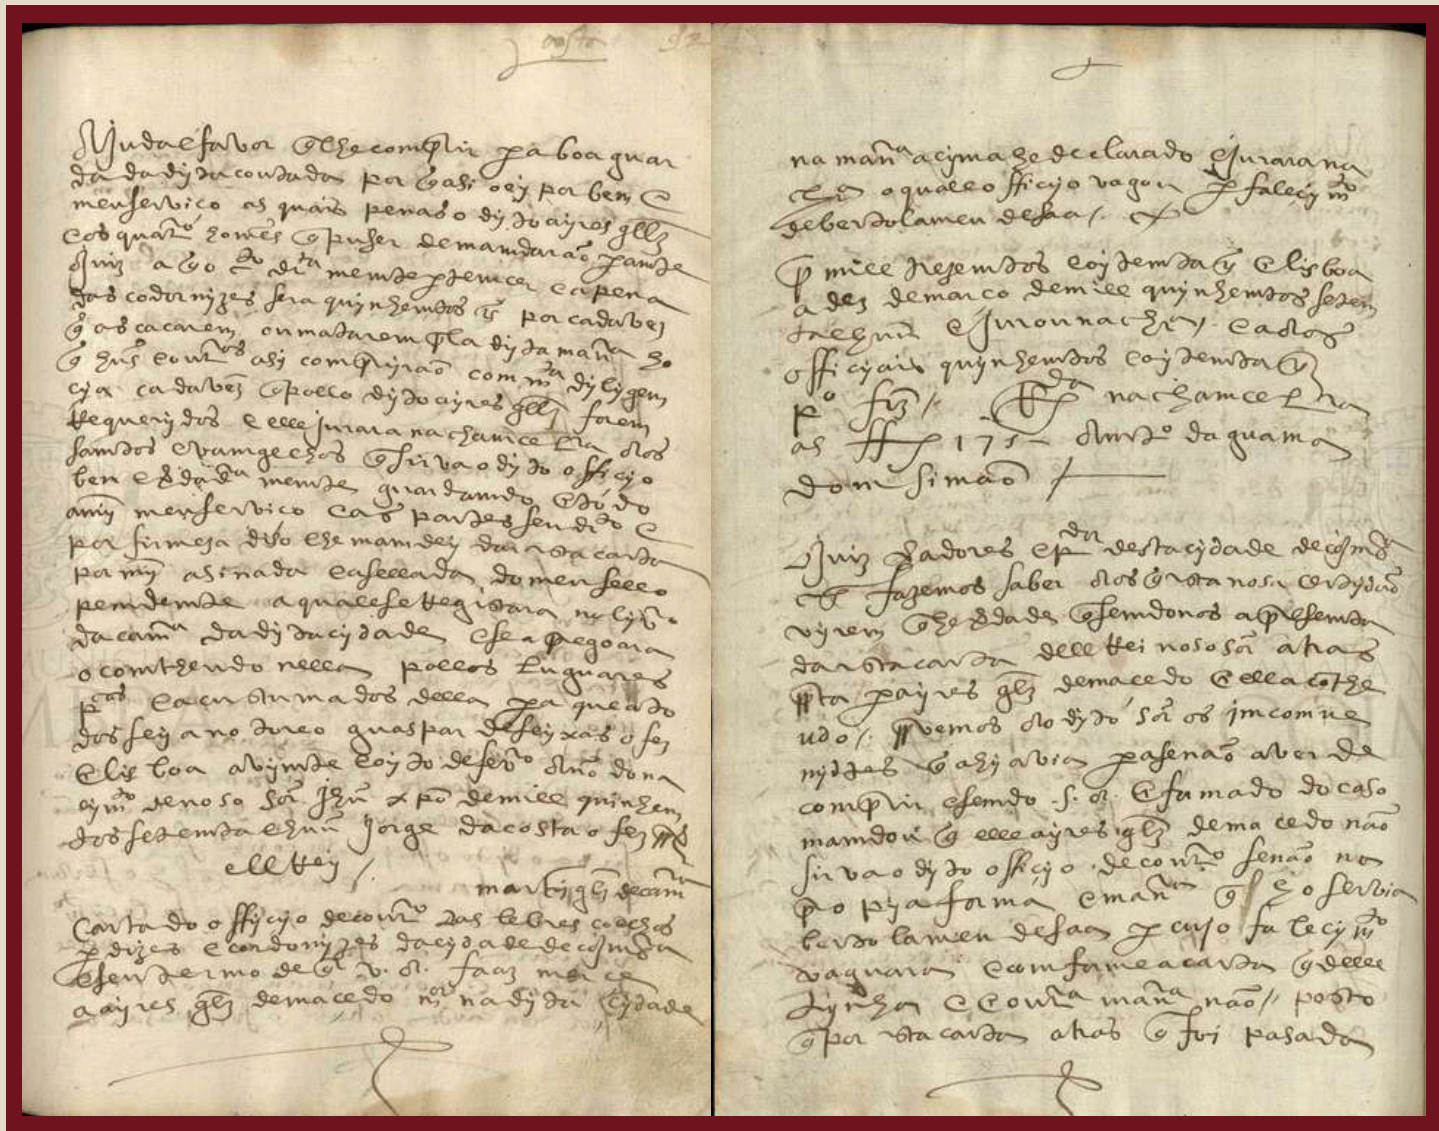 Ajuda e favor q̃ lhe comprir pa boa guar
da da dyta coutada por q̃ asi o ey por bem e
meu serviço as quais penas o dyto ayres glz̃
e os quatro homẽs q̃ puser demandarão perante
Juiz a q̃ o dirta mente pertencer e a pena
das codornizes sera quynhemtos rs̃ por cada vez
q̃ as caçarem ou matarem pela dyta manra ho
q̃ hũs e outros asi compryrão com mta dyligem
cya cada vez q̃ pello dyto ayres glz̃ forem
Requerydos e elle jurara na chamcelra aos
samtos evamgelhos q̃ sirva o dyto officyo
bem e vdadra mente guardamdo em todo
a mỹ meu serviço e as partes seu dito e
por firmeza diso lhe mamdey dar esta carta
por mỹ asinada e asellada do meu sello
pemdemte a qual se Registara no lyvro
da camra da dyta cydade e se apregoara
o comtheudo nella pollos luguares
pcos e acustumados della pa que a to
dos seja notoreo guaspar de seixas o fez
e lisboa a vymte e oyto de fevro Ano do na
cymto de noso sõr Jhũ xpõ de mill quinhem
tos setemta e huũ Jorge da costa o fez esprever
ell Rey /.
martỹ glz̃ de camra
Carta do officyo de coutro das lebres coelhos
perdizes e codornyzes da cydade de coymbra
e seu termo de q̃ v. a. faz merce
a ayres glz̃ de macedo mor na dyta cydade
na manra acyma he declarado e jurara na
chrã o quall officyo vagou per falecymto
de bertolameu de saa /.
pg mill trezemtos e oytemta rs̃ e lisboa
a dez de março de mill quynhemtos setem
ta e huũ e jurou na chrã /. e aos
officyais quynhemtos e oytemta rs̃
po frz̃ //. Rda na chamcelra
as ff 175 Amto da guama
dom simão
Juiz vreadores e prdor desta cydade de coymbra
etc̃ fazemos saber aos q̃ esta nosa certydão
vyrem q̃ he vdade q̃ semdo nos apresemta
da esta carta dell Rei noso sõr atras
espta per ayres glz̃ de macedo e ella cõthe
udo /. esprevemos ao dyto sõr os imcomve
nyetes q̃ ahy avia pera se não aver de
comprir e semdo .s. a. emfurmado do caso
mamdou q̃ elle ayres glz̃ de macedo não
sirva o dyto officyo de coutro senão na
propya forma e manra q̃ ho servia
bertolameu de saa per cujo falecymto
vaguara e comforme a carta q̃ delle
tynha e e outra manra não // posto
q̃ por esta carta atras q̃ foi pasada